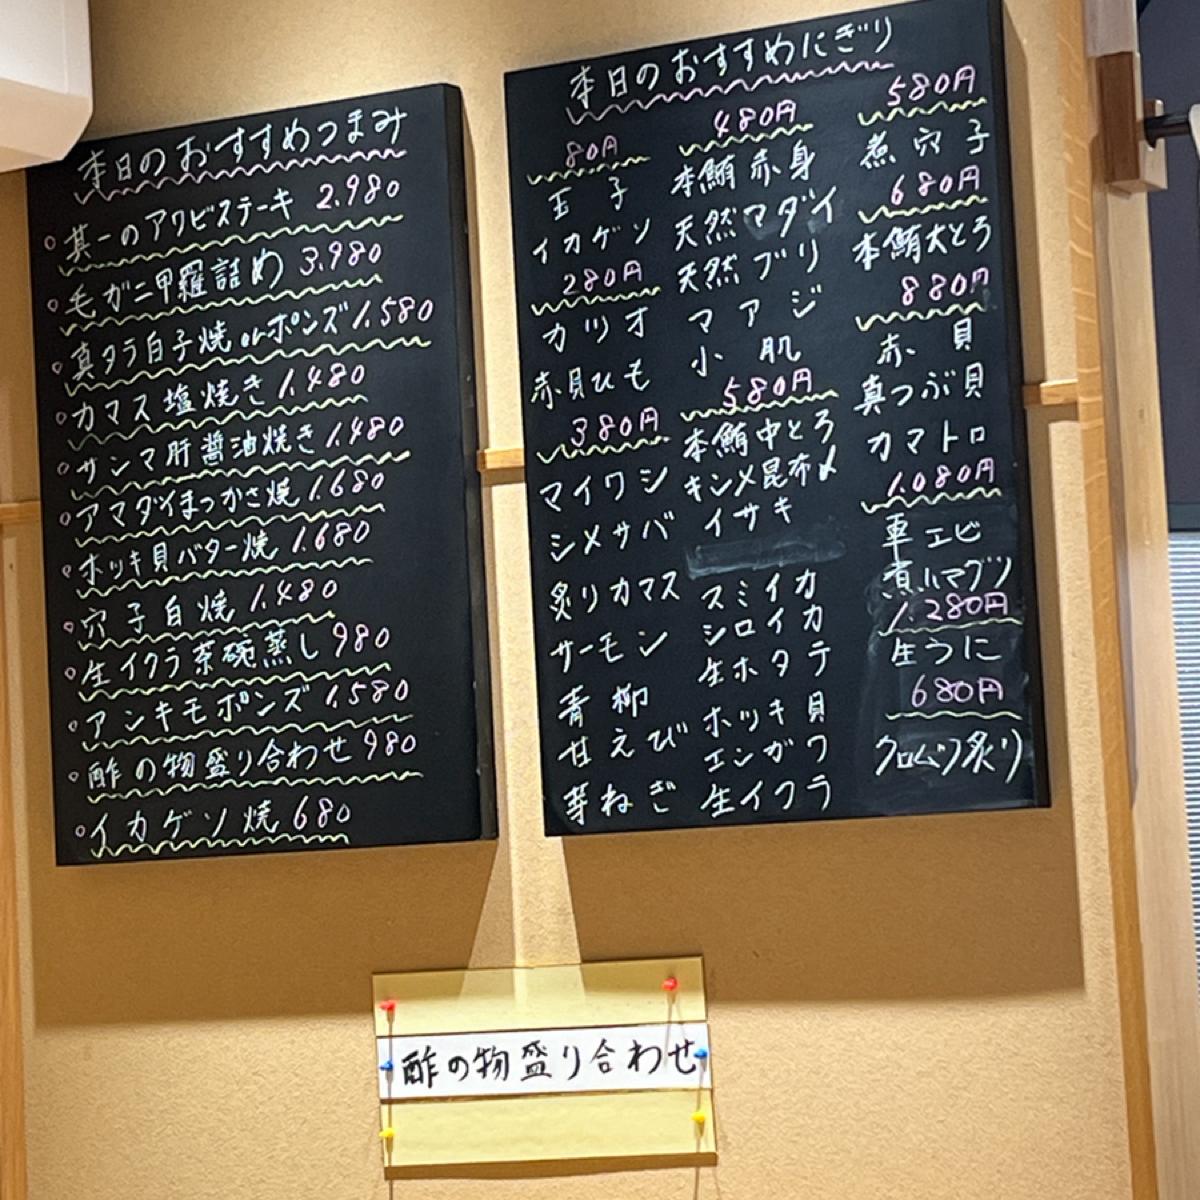 本日のおすすめつまみ
其一のアワビステーキ 2.980
毛ガニ甲羅詰め 3.980
真タラ白子焼orポンズ 1.580
カマス塩焼き 1.480
サンマ肝醤油焼き 1.480
アマダイまつかさ焼 1.680
ホッキ貝バター焼 1.680
穴子白焼 1.480
生イクラ茶碗蒸し 980
アンキモポンズ 1.580
酢の物盛り合わせ 980
イカゲソ焼 680
本日のおすすめにぎり
80円
玉子
イカゲソ
280円
カツオ
赤貝ひも
380円
マイワシ
シメサバ
炙りカマス
サーモン
青柳
甘えび
芽ねぎ
480円
本鮪赤身
天然マダイ
天然ブリ
マアジ
小肌
580円
本鮪中とろ
キンメ昆布〆
イサキ
スミイカ
シロイカ
生ホタテ
ホッキ貝
エンガワ
生イクラ
580円
煮穴子
680円
本鮪大とろ
880円
赤貝
真つぶ貝
カマトロ
1.080円
車エビ
煮ハマグリ
1.280円
生うに
680円
クロムツ炙り
酢の物盛り合わせ